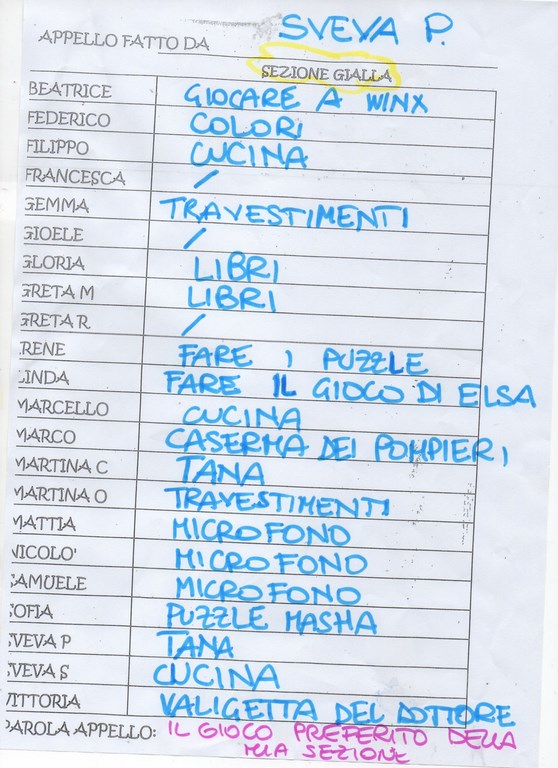 APPELLO FATTO DA SVEVA P.
SEZIONE GIALLA
BEATRICE GIOCARE A WINX
FEDERICO COLORI
FILIPPO CUCINA
FRANCESCA /
GEMMA TRAVESTIMENTI
GIOELE /
GLORIA LIBRI
GRETA M LIBRI
GRETA R /
IRENE FARE I PUZZLE
LINDA FARE IL GIOCO DI ELSA
MARCELLO CUCINA
MARCO CASERMA DEI POMPIERI
MARTINA C TANA
MARTINA O TRAVESTIMENTI
MATTIA MICROFONO
NICOLO' MICROFONO
SAMUELE MICROFONO
SOFIA PUZZLE MASHA
SVEVA P TANA
SVEVA S CUCINA
VITTORIA VALIGETTA DEL DOTTORE
PAROLA APPELLO: IL GIOCO PREFERITO DELLA
MIA SEZIONE